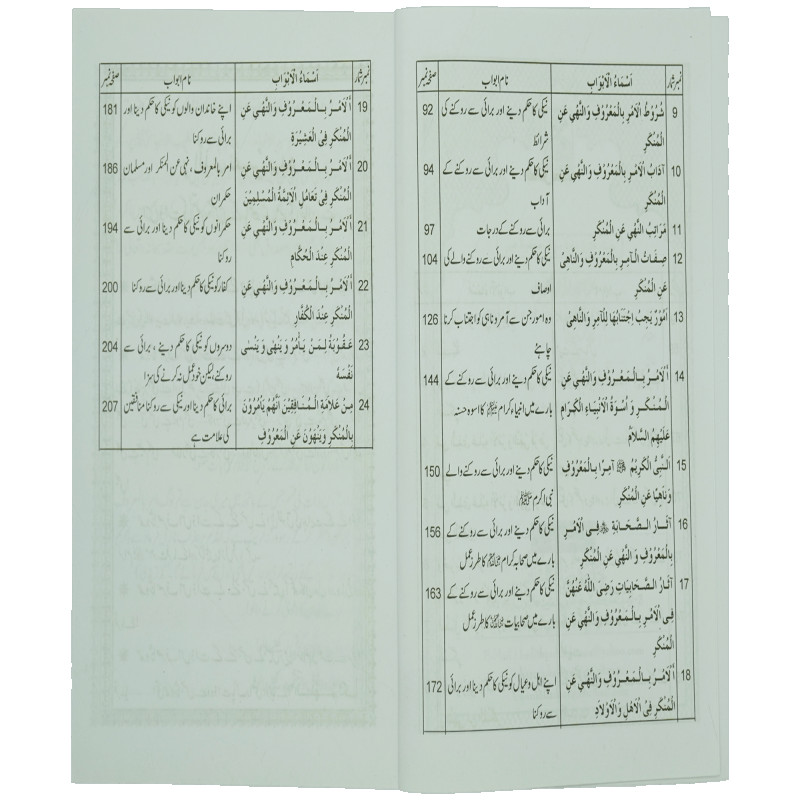 نمبر شمار اَسْمَاءُ الْاَبْوَابِ نام ابواب صفحہ نمبر
9 شُرُوْطُ الْاَمْرِ بِالْمَعْرُوْفِ وَالنَّهْيِ عَنِ نیکی کا حکم دینے اور برائی سے روکنے کی 92
الْمُنْكَرِ شرائط
10 آدَابُ الْاَمْرِ بِالْمَعْرُوْفِ وَالنَّهْيِ عَنِ نیکی کا حکم دینے اور برائی سے روکنے کے 94
الْمُنْكَرِ آداب
11 مَرَاتِبُ النَّهْيِ عَنِ الْمُنْكَرِ برائی سے روکنے کے درجات 97
12 صِفَاتُ الْآمِرِ بِالْمَعْرُوْفِ وَالنَّاهِىْ نیکی کا حکم دینے اور برائی سے روکنے والے کی 104
عَنِ الْمُنْكَرِ اوصاف
13 اُمُوْرٌ يَجِبُ اِجْتِنَابُهَا لِلْآمِرِ وَالنَّاهِىْ وہ امور جن سے آمر و ناہی کو اجتناب کرنا 126
چاہئے
14 اَلْاَمْرُ بِالْمَعْرُوْفِ وَالنَّهْيِ عَنِ نیکی کا حکم دینے اور برائی سے روکنے کے 144
الْمُنْكَرِ وَ اُسْوَةُ الْاَنْبِيَاءِ الْكِرَامِ بارے میں انبیاء کرام کا اسوہ حسنہ
عَلَيْهِمُ السَّلَامُ
15 اَلنَّبِىُّ الْكَرِيْمُ ﷺ آمِرًا بِالْمَعْرُوْفِ نیکی کا حکم دینے اور برائی سے روکنے والے 150
وَنَاهِيًا عَنِ الْمُنْكَرِ نبی اکرم ﷺ
16 آثَارُ الصَّحَابَةِ فِى الْاَمْرِ نیکی کا حکم دینے اور برائی سے روکنے کے 156
بِالْمَعْرُوْفِ وَ النَّهْيِ عَنِ الْمُنْكَرِ بارے میں صحابہ کرام کا طرز عمل
17 آثَارُ الصَّحَابِيَاتِ رَضِىَ اللّٰهُ عَنْهُنَّ نیکی کا حکم دینے اور برائی سے روکنے کے 163
فِى الْاَمْرِ بِالْمَعْرُوْفِ وَالنَّهْيِ عَنِ بارے میں صحابیات کا طرز عمل
الْمُنْكَرِ
18 اَلْاَمْرُ بِالْمَعْرُوْفِ وَالنَّهْيِ عَنِ اپنے اہل و عیال کو نیکی کا حکم دینا اور برائی 172
الْمُنْكَرِ فِى الْاَهْلِ وَالْاَوْلَادِ سے روکنا
نمبر شمار اَسْمَاءُ الْاَبْوَابِ نام ابواب صفحہ نمبر
19 اَلْاَمْرُ بِالْمَعْرُوْفِ وَالنَّهْيِ عَنِ اپنے خاندان والوں کو نیکی کا حکم دینا اور 181
الْمُنْكَرِ فِى الْعَشِيْرَةِ برائی سے روکنا
20 اَلْاَمْرُ بِالْمَعْرُوْفِ وَالنَّهْيِ عَنِ امر بالمعروف ، نہی عن المنکر اور مسلمان 186
الْمُنْكَرِ فِىْ تَعَامُلِ الْاَئِمَّةِ الْمُسْلِمِيْنَ حکمران
21 اَلْاَمْرُ بِالْمَعْرُوْفِ وَالنَّهْيِ عَنِ حکمرانوں کو نیکی کا حکم دینا اور برائی سے 194
الْمُنْكَرِ عِنْدَ الْحُكَّامِ روکنا
22 اَلْاَمْرُ بِالْمَعْرُوْفِ وَالنَّهْيِ عَنِ کفار کو نیکی کا حکم دینا اور برائی سے روکنا 200
الْمُنْكَرِ عِنْدَ الْكُفَّارِ
23 عُقُوْبَةُ لِمَنْ يَأْمُرُ وَيَنْهٰى وَيَنْسٰى دوسروں کو نیکی کا حکم دینے ، برائی سے 204
نَفْسَهُ روکنے، لیکن خود عمل نہ کرنے کی سزا
24 مِنْ عَلَامَةِ الْمُنَافِقِيْنَ اَنَّهُمْ يَاْمُرُوْنَ برائی کا حکم دینا اور نیکی سے روکنا منافقین 207
بِالْمُنْكَرِ وَيَنْهَوْنَ عَنِ الْمَعْرُوْفِ کی علامت ہے